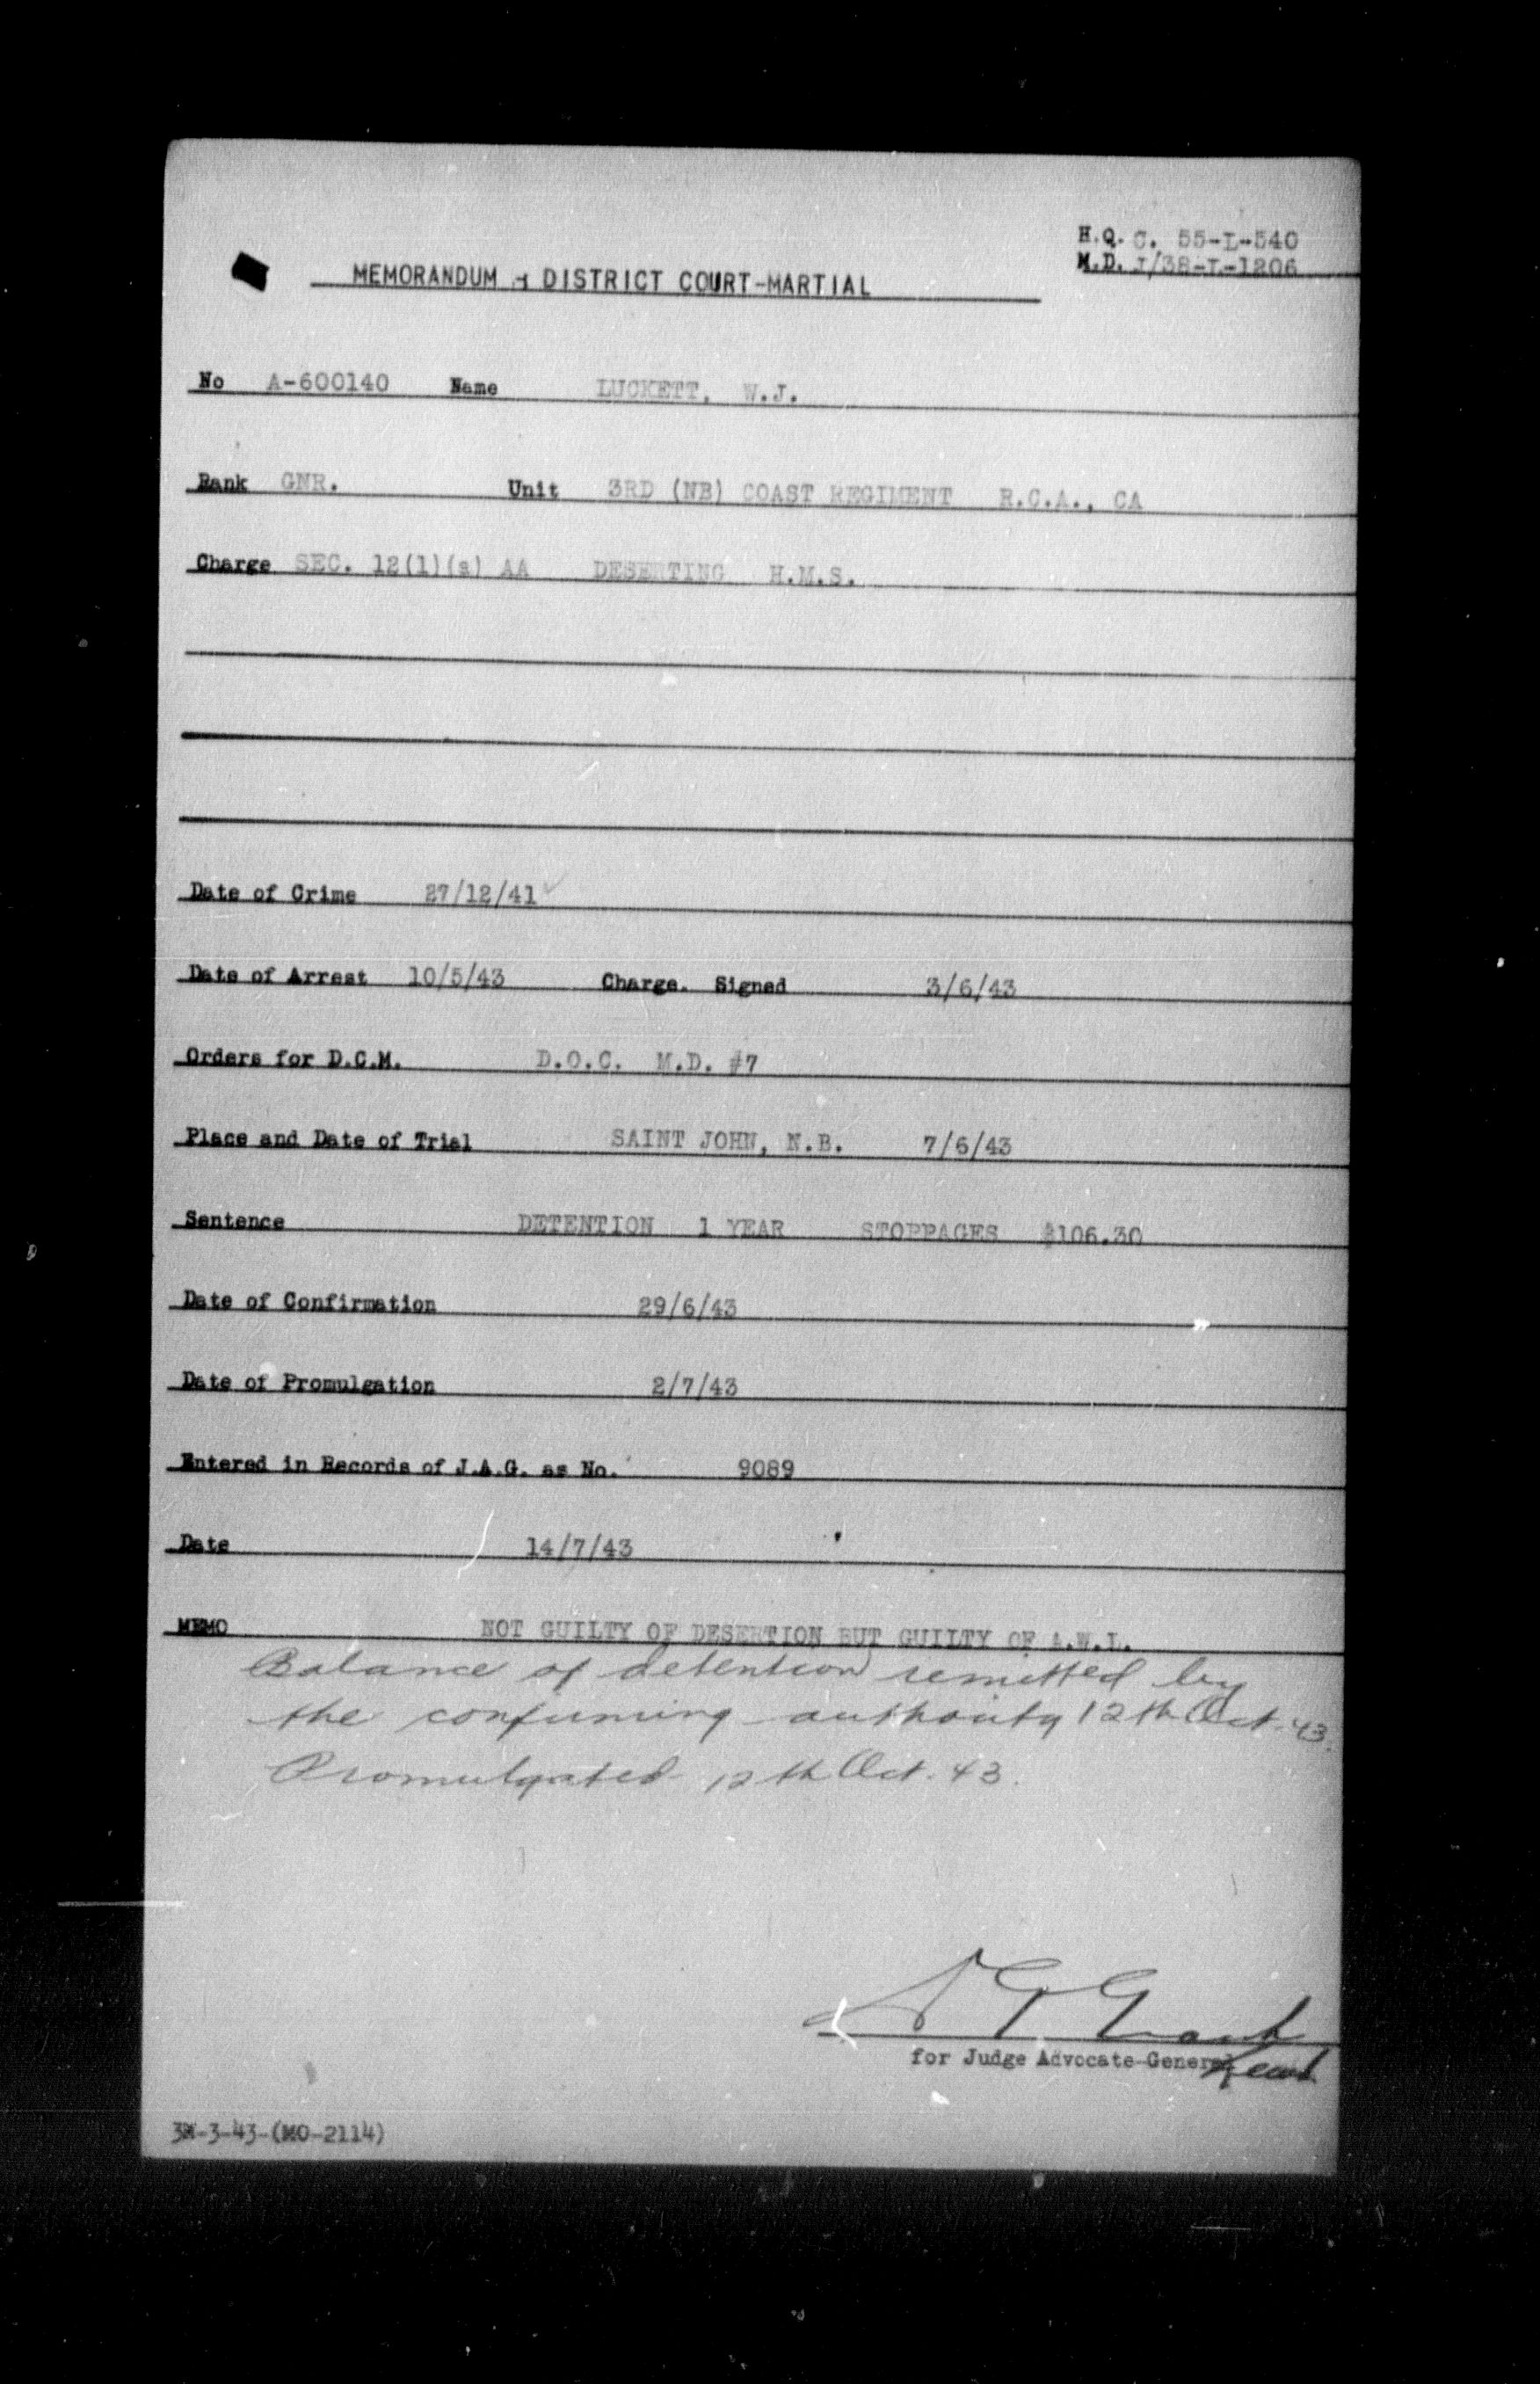 H.Q. C. 55-L-540
M.D. J/38-L-1206
MEMORANDUM - DISTRICT COURT-MARTIAL
No A-600140 Name LUCKETT, W.J.
Rank GNR. Unit 3RD (NB) COAST REGIMENT R.C.A., CA
Charge SEC. 12(1)(a) AA DESERTING H.M.S.
Date of Crime 27/12/41
Date of Arrest 10/5/43 Charge. Signed 3/6/43
Orders for D.C.M. D.O.C. M.D. #7
Place and Date of Trial SAINT JOHN, N.B. 7/6/43
Sentence DETENTION 1 YEAR STOPPAGES $106.30
Date of Confirmation 29/6/43
Date of Promulgation 2/7/43
Entered in Records of J.A.G. as No. 9089
Date 14/7/43
MEMO NOT GUILTY OF DESERTION BUT GUILTY OF A.W.L.
Balance of detention remitted by
the confirming authority 12th Oct. 43.
Promulgated 12th Oct. 43.
for Judge Advocate-General
3M-3-43-(MO-2114)